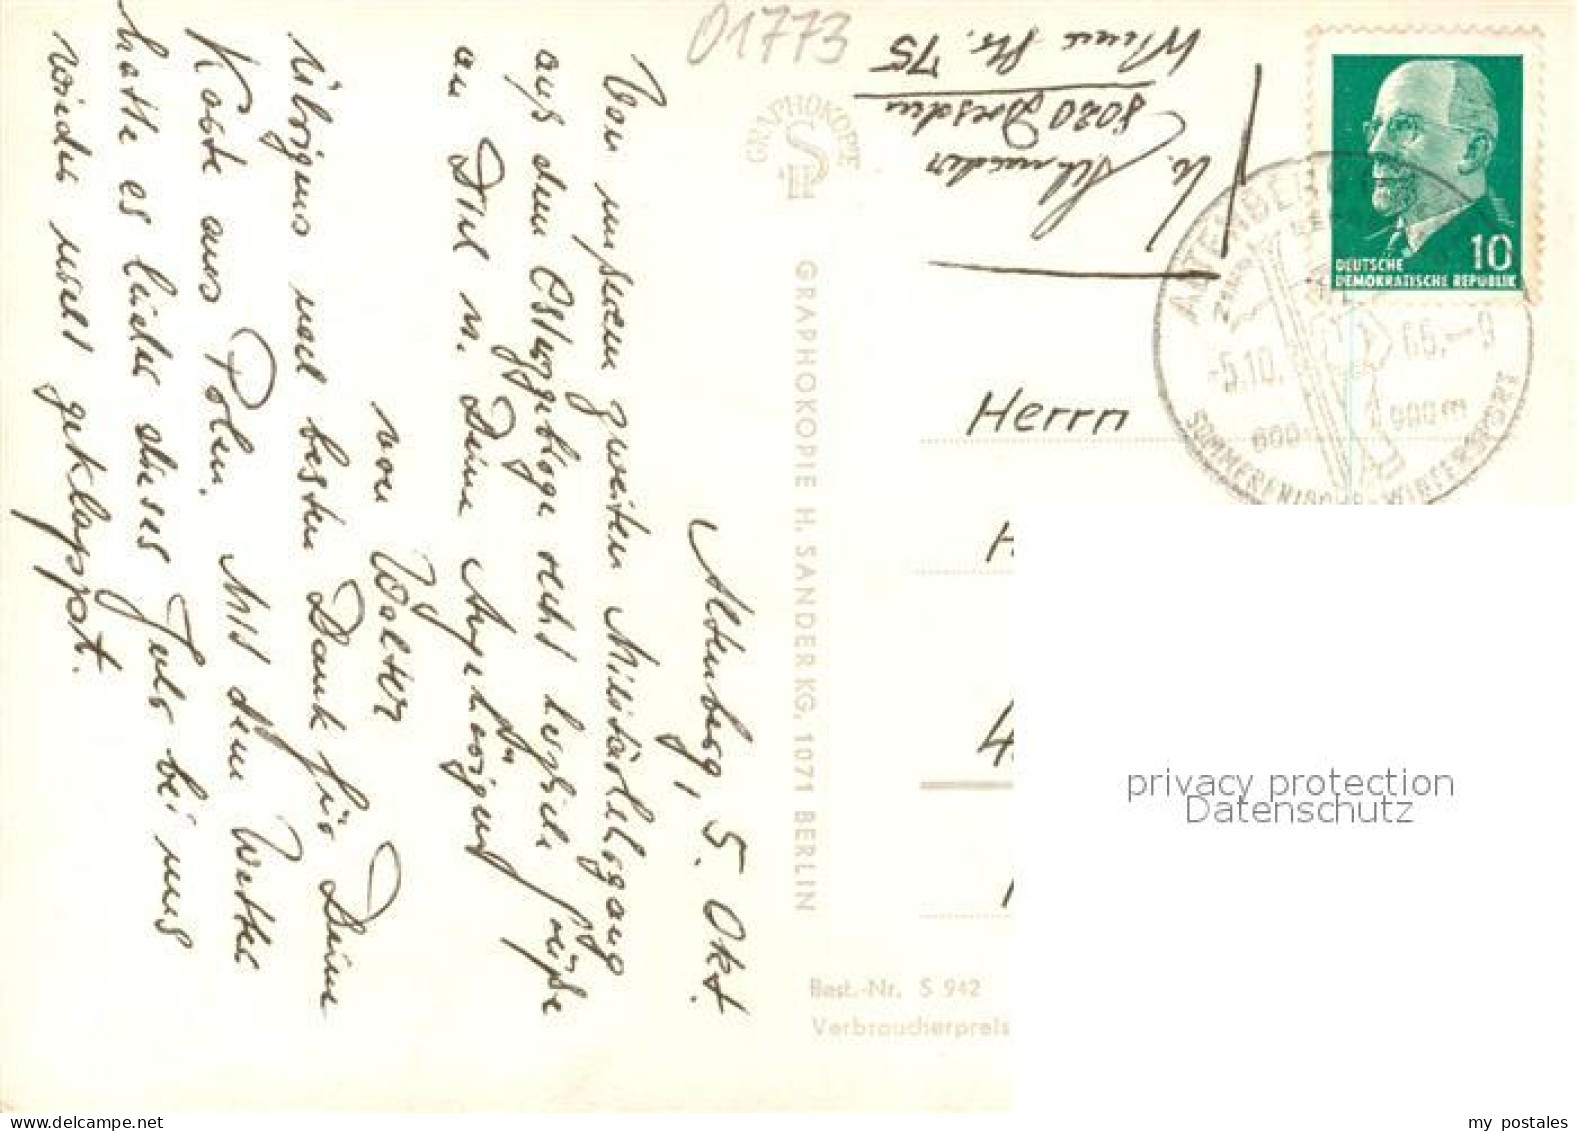 01773
W. Schneider
8020 Dresden
Wiener Str. 75
Altenberg, 5. Okt.
Von unserem zweiten Militärlehrgang
aus dem Osterzgebirge recht herzliche Grüße
an Dich u. Deine Angehörigen
von Walter
Übrigens noch besten Dank für Deine
Karte aus Polen. Mit dem Wetter
hatte es leider dieses Jahr bei uns
wieder nicht geklappt.
GRAPHOKOPIE
H S
GRAPHOKOPIE H. SANDER KG, 1071 BERLIN
Best.-Nr. S 942
Verbraucherpreis
10
DEUTSCHE
DEMOKRATISCHE REPUBLIK
ALTENBERG
-5.10. 66.-9
600m 900m
SOMMERFRISCHE-WINTERSPORT
Herrn
H
4
privacy protection
Datenschutz
my postales